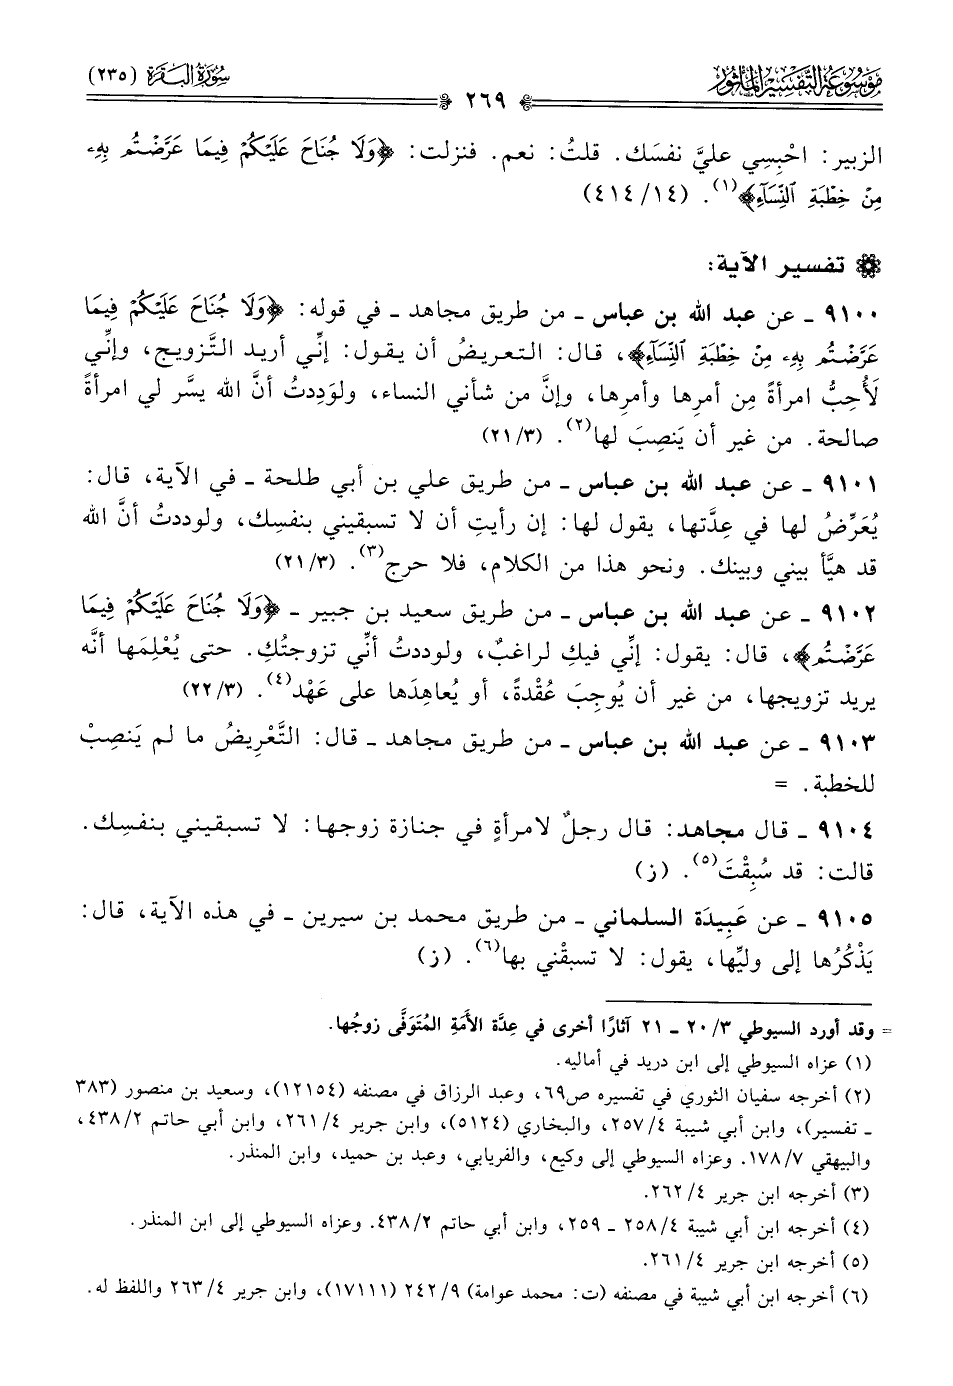 موسوعة التفسير المأثور
سورة البقرة (٢٣٥)
٢٦٩
الزبير: احْبِسِي عليَّ نفسَك. قلتُ: نعم. فنزلت: ﴿وَلَا جُنَاحَ عَلَيْكُمْ فِيمَا عَرَّضْتُم بِهِۦ
مِنْ خِطْبَةِ ٱلنِّسَآءِ﴾(١). (٤١٤/١٤)
تفسير الآية:
٩١٠٠ ـ عن عبد الله بن عباس ـ من طريق مجاهد ـ في قوله: ﴿وَلَا جُنَاحَ عَلَيْكُمْ فِيمَا
عَرَّضْتُم بِهِۦ مِنْ خِطْبَةِ ٱلنِّسَآءِ﴾، قال: التعريضُ أن يقول: إنِّي أريد التَّزويج، وإنِّي
لَأُحِبُّ امرأةً مِن أمرِها وأمرِها، وإنَّ من شأني النساء، ولوَدِدتُ أنَّ الله يسَّر لي امرأةً
صالحة. من غير أن يَنصِبَ لها(٢). (٢١/٣)
٩١٠١ ـ عن عبد الله بن عباس ـ من طريق علي بن أبي طلحة ـ في الآية، قال:
يُعَرِّضُ لها في عِدَّتها، يقول لها: إن رأيتِ أن لا تسبقيني بنفسِك، ولوددتُ أنَّ الله
قد هيَّأ بيني وبينك. ونحو هذا من الكلام، فلا حرج(٣). (٢١/٣)
٩١٠٢ ـ عن عبد الله بن عباس ـ من طريق سعيد بن جبير ـ ﴿وَلَا جُنَاحَ عَلَيْكُمْ فِيمَا
عَرَّضْتُم﴾، قال: يقول: إنِّي فيكِ لراغبٌ، ولوددتُ أنِّي تزوجتُكِ. حتى يُعْلِمَها أنَّه
يريد تزويجها، من غير أن يُوجِبَ عُقْدةً، أو يُعاهِدَها على عَهْد(٤). (٢٢/٣)
٩١٠٣ ـ عن عبد الله بن عباس ـ من طريق مجاهد ـ قال: التَّعْرِيضُ ما لم يَنصِبْ
للخطبة. =
٩١٠٤ ـ قال مجاهد: قال رجلٌ لامرأةٍ في جنازة زوجها: لا تسبقيني بنفسِك.
قالت: قد سُبِقْتَ(٥). (ز)
٩١٠٥ ـ عن عَبِيدَة السلماني ـ من طريق محمد بن سيرين ـ في هذه الآية، قال:
يَذْكُرُها إلى وليِّها، يقول: لا تسبقْني بها(٦). (ز)
= وقد أورد السيوطي ٢٠/٣ ـ ٢١ آثارًا أخرى في عِدَّة الأَمَةِ المُتَوَفَّى زوجُها.
(١) عزاه السيوطي إلى ابن دريد في أماليه.
(٢) أخرجه سفيان الثوري في تفسيره ص٦٩، وعبد الرزاق في مصنفه (١٢١٥٤)، وسعيد بن منصور (٣٨٣
ـ تفسير)، وابن أبي شيبة ٢٥٧/٤، والبخاري (٥١٢٤)، وابن جرير ٢٦١/٤، وابن أبي حاتم ٤٣٨/٢،
والبيهقي ١٧٨/٧. وعزاه السيوطي إلى وكيع، والفريابي، وعبد بن حميد، وابن المنذر.
(٣) أخرجه ابن جرير ٢٦٢/٤.
(٤) أخرجه ابن أبي شيبة ٢٥٨/٤ ـ ٢٥٩، وابن أبي حاتم ٤٣٨/٢. وعزاه السيوطي إلى ابن المنذر.
(٥) أخرجه ابن جرير ٢٦١/٤.
(٦) أخرجه ابن أبي شيبة في مصنفه (ت: محمد عوامة) ٢٤٢/٩ (١٧١١١)، وابن جرير ٢٦٣/٤ واللفظ له.